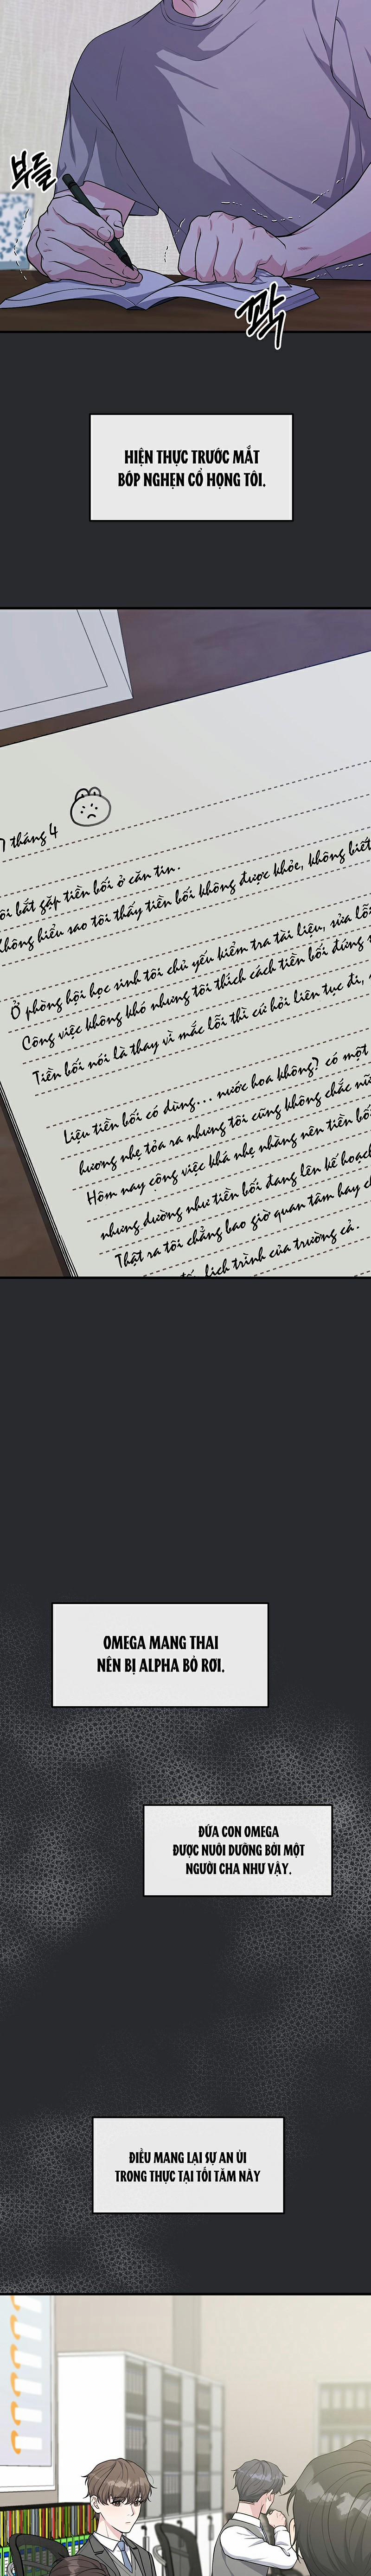 부들
꽉
HIỆN THỰC TRƯỚC MẮT
BÓP NGHẸN CỔ HỌNG TÔI.
7 tháng 4
ôi bắt gặp tiền bối ở căn tin.
Không hiểu sao tôi thấy tiền bối không được khỏe, không biết
Ở phòng hội học sinh tôi chủ yếu kiểm tra tài liệu, sửa lỗi
Công việc không khó nhưng tôi thích cách tiền bối đứng
Tiền bối nói là thay vì mắc lỗi thì cứ hỏi liên tục đi,
Liệu tiền bối có dùng... nước hoa không? có một
hương nhẹ tỏa ra nhưng tôi cũng không chắc nữ
Hôm nay công việc khá nhẹ nhàng nên tiền bối
nhưng dường như tiền bối đang lên kế hoạch
Thật ra tôi chẳng bao giờ quan tâm hay ch
lịch trình của trường cả.
OMEGA MANG THAI
NÊN BỊ ALPHA BỎ RƠI.
ĐỨA CON OMEGA
ĐƯỢC NUÔI DƯỠNG BỞI MỘT
NGƯỜI CHA NHƯ VẬY.
ĐIỀU MANG LẠI SỰ AN ỦI
TRONG THỰC TẠI TỐI TĂM NÀY